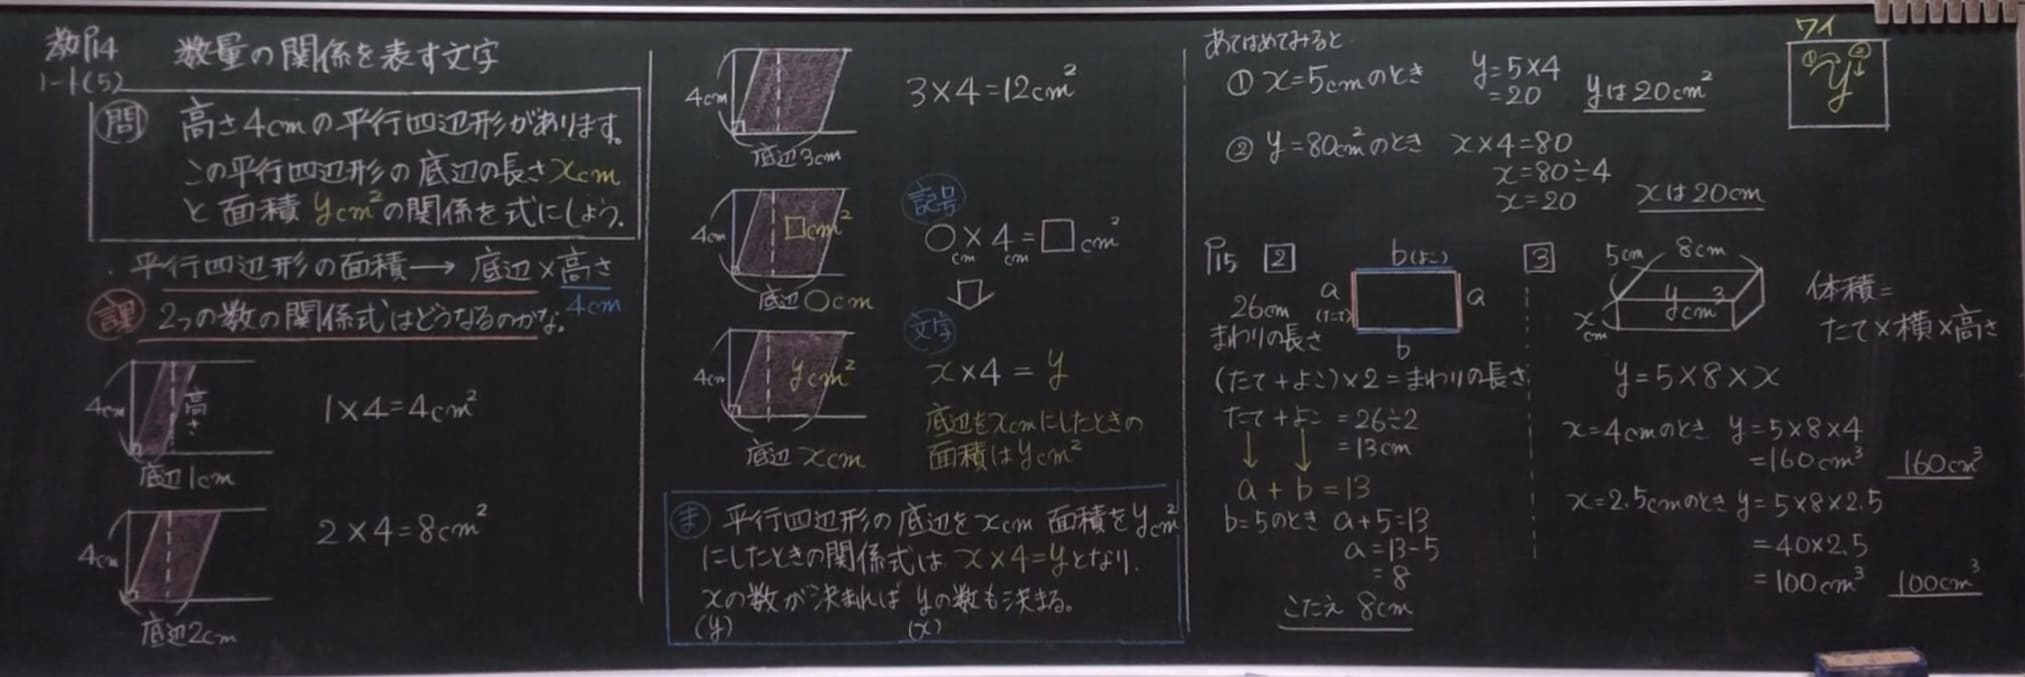 教P14 数量の関係を表す文字
1-1(5)
問 高さ4cmの平行四辺形があります。
この平行四辺形の底辺の長さxcm
と面積ycm²の関係を式にしよう。
・平行四辺形の面積→底辺×高さ
4cm
課 2つの数の関係式はどうなるのかな。
4cm 高さ
底辺1cm
1×4=4cm²
4cm
底辺2cm
2×4=8cm²
4cm
底辺3cm
3×4=12cm²
4cm □cm²
底辺○cm
記号
○×4=□cm²
cm cm
4cm ycm²
底辺xcm
文字
x×4=y
底辺をxcmにしたときの
面積はycm²
ま 平行四辺形の底辺をxcm 面積をycm²
にしたときの関係式は x×4=yとなり、
xの数が決まれば yの数も決まる。
(y) (x)
あてはめてみると
① x=5cmのとき y=5×4
=20 yは20cm²
② y=80cm²のとき x×4=80
x=80÷4
x=20 xは20cm
ワイ
① ②
y
P15 2
b(よこ)
a a
(たて)
b
26cm
まわりの長さ
(たて+よこ)×2=まわりの長さ
たて+よこ=26÷2
=13cm
a+b=13
b=5のとき a+5=13
a=13-5
=8
こたえ 8cm
3
5cm 8cm
ycm³
x
cm
体積=
たて×横×高さ
y=5×8×x
x=4cmのとき y=5×8×4
=160cm³ 160cm³
x=2.5cmのとき y=5×8×2.5
=40×2.5
=100cm³ 100cm³